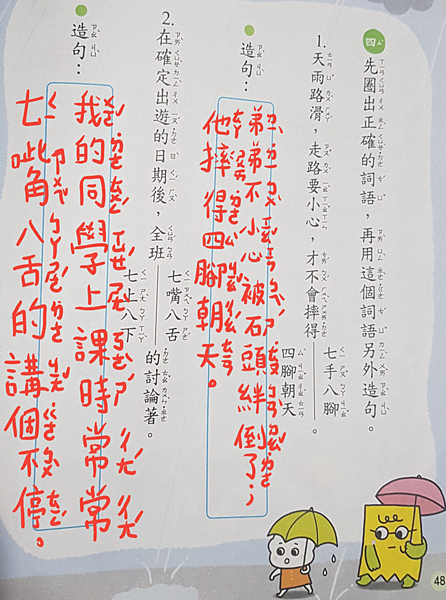 四 先圈出正確的詞語，再用這個詞語另外造句。
1. 天雨路滑，走路要小心，才不會摔得
七手八腳
四腳朝天
。
造句：
弟弟不小心被石頭絆倒了，
他摔得四腳朝天。
2. 在確定出遊的日期後，全班
七嘴八舌
七上八下
的討論著。
造句：
我的同學上課時常常
七嘴八舌的講個不停。
48